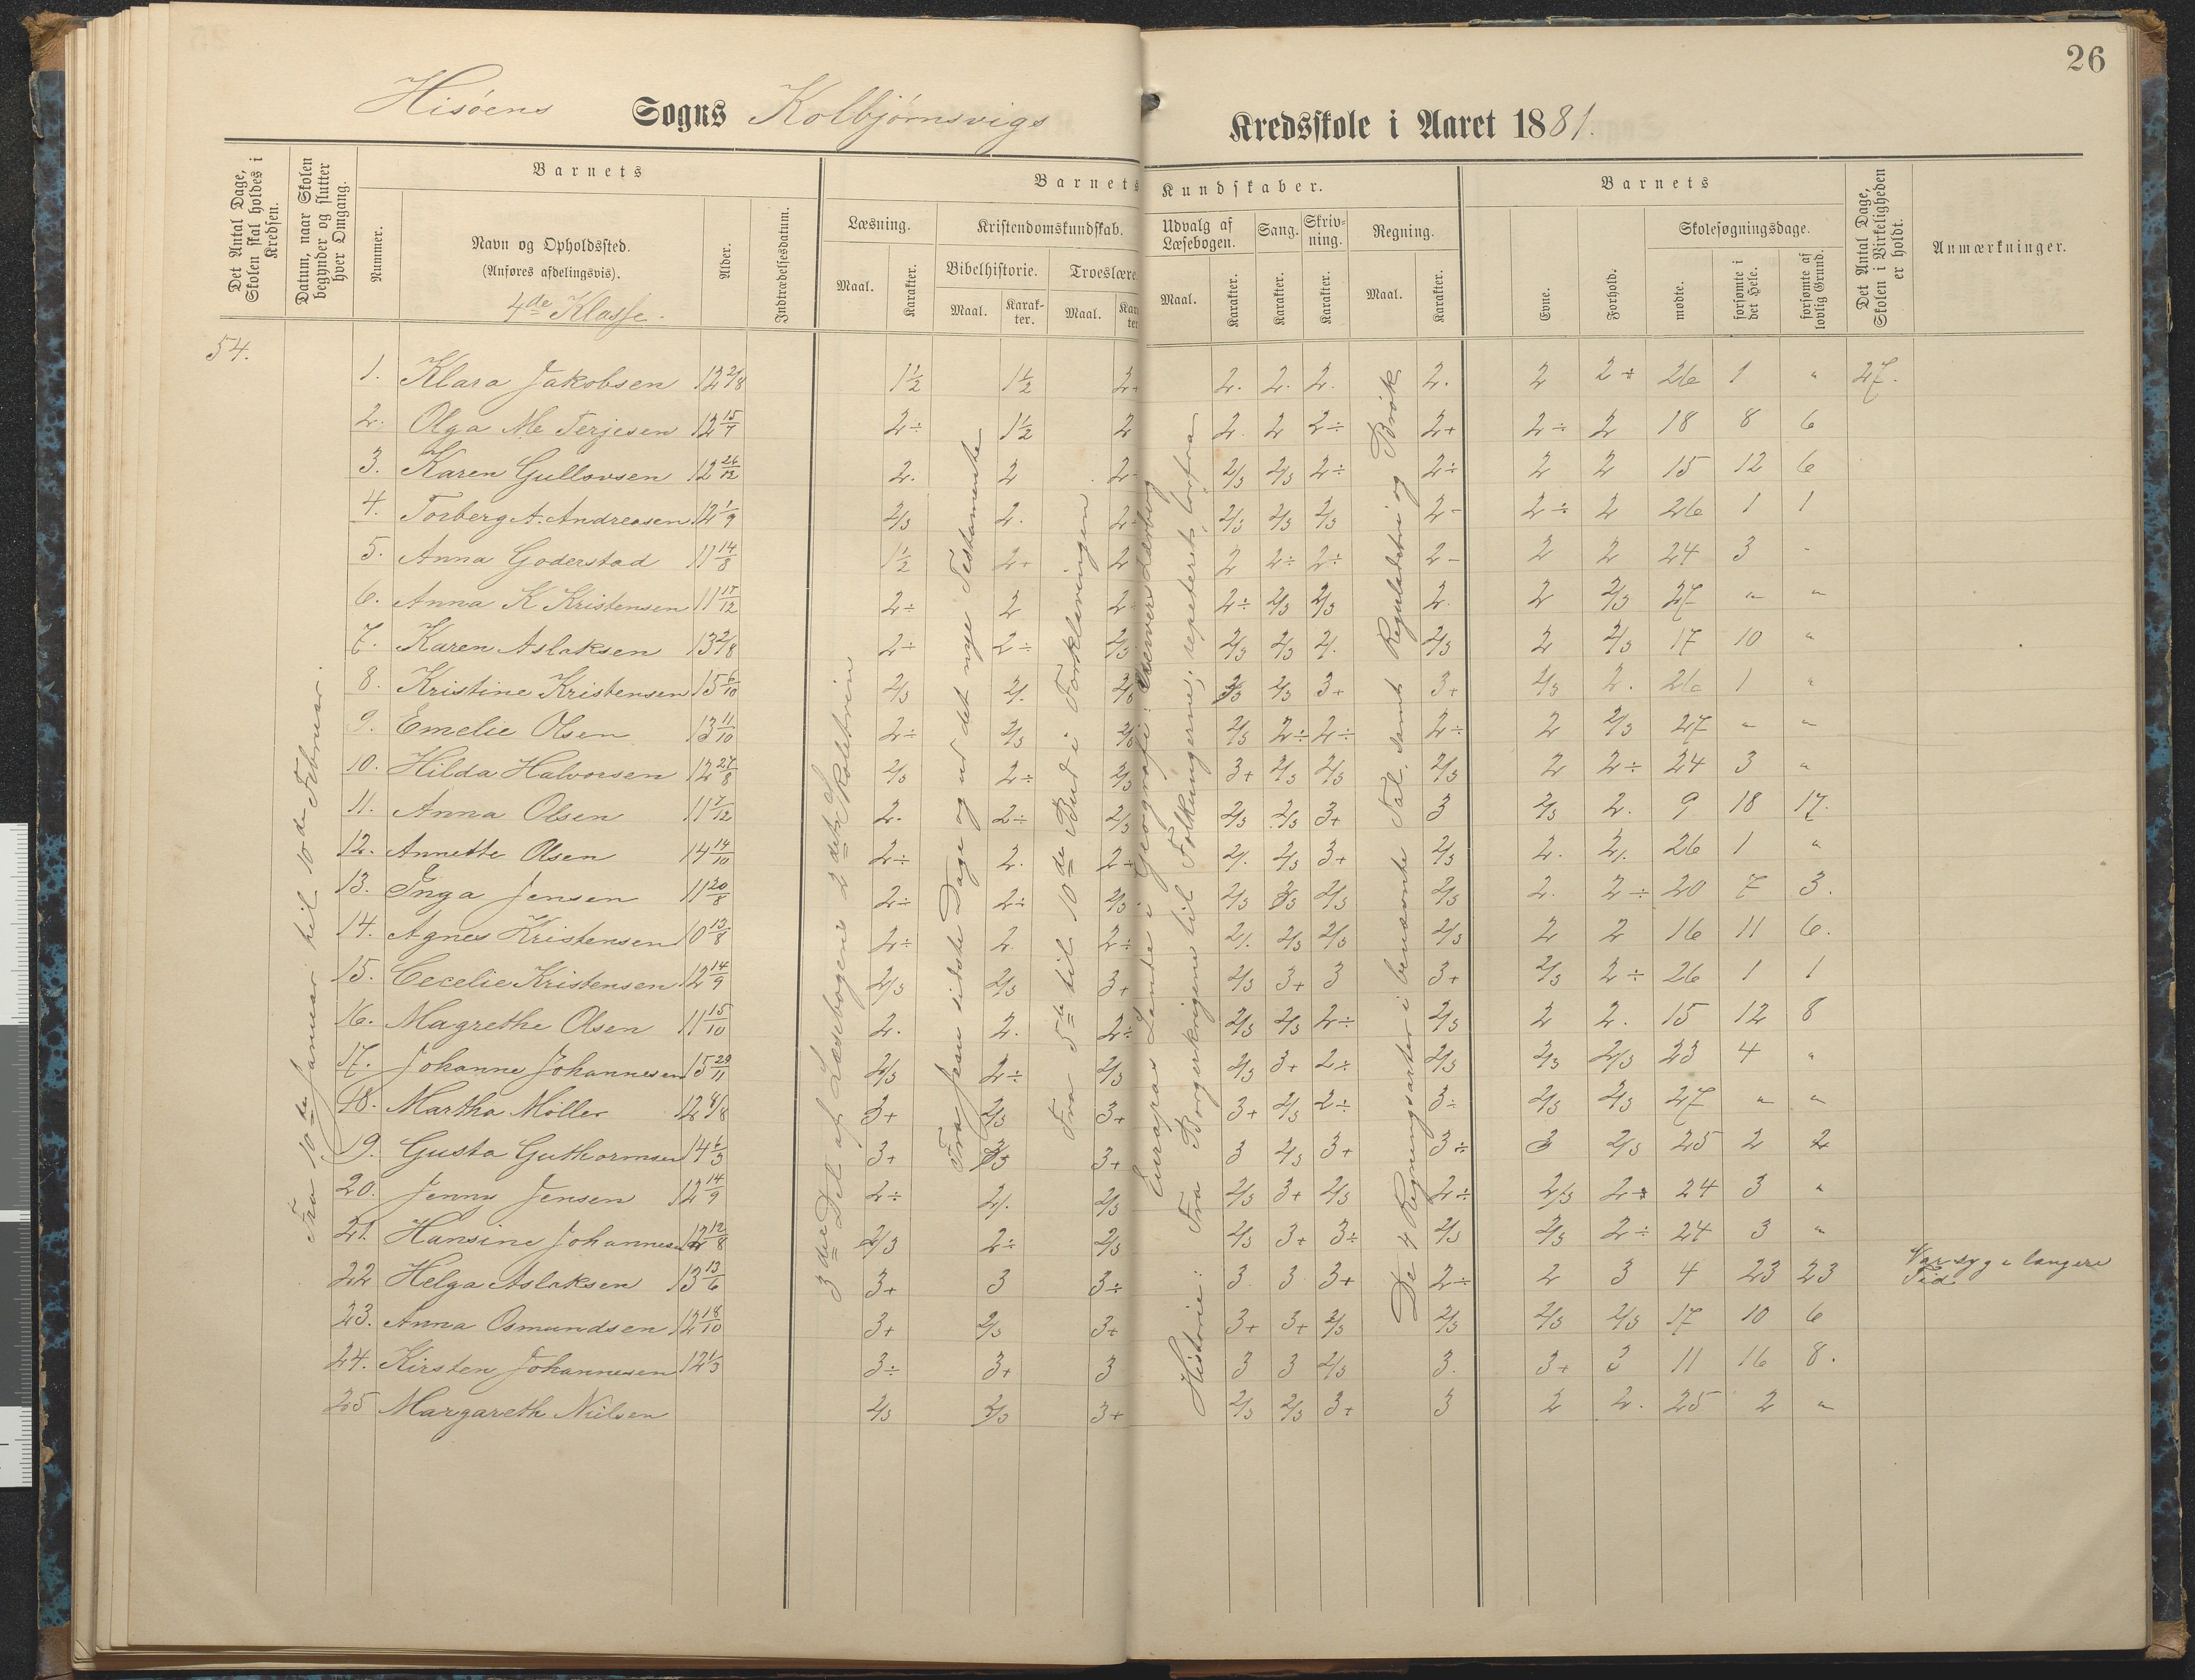 26
Hisöens Sogns Kolbjørnsvigs Kredsskole i Aaret 1881.
Det Antal Dage, Skolen skal holdes i Kredsen.
Datum, naar Skolen begynder og slutter hver Omgang.
Barnets
Nummer.
Navn og Opholdssted.
(Anføres afdelingsvis).
4de Klasse.
Alder.
Indtrædelsesdatum.
Barnets Kundskaber.
Læsning.
Maal. Karakter.
Kristendomskundskab.
Bibelhistorie. Troeslære
Maal. Karakter. Maal.
Udvalg af Læsebogen.
Maal. Karakter.
Sang.
Karakter.
Skrivning.
Karakter.
Regning.
Maal. Karakter.
Barnets
Evne. Forhold.
Skolesøgningsdage.
mødte. forsømte i det Hele. forsømte af lovlig Grund.
Det Antal Dage, Skolen i Virkeligheden er holdt.
Anmærkninger.
54.
Fra 10de Januar til 10de Februar.
3die Del af Læsebogens 2det Skoletrin
Fra Jesu sidste Dage og ud det nye Testamente
Fra 5te til 10de Bud i Forklaringen
Europas Lande i Geografi
Historie: Fra Borgerkrigene til Folkungerne; repeteret forfra
De 4 Regningsarter i benævnte Tal, samt Reguladetri og Brøk
1. Klara Jakobsen 12 2/8 1½ 1½ 2+ 2. 2. 2. 2. 2 2÷ 26 1 " 27.
2. Olga Me Terjesen 12 15/7 2÷ 1½ 2 2. 2 2÷ 2+ 2÷ 2 18 8 6
3. Karen Gullovsen 12 26/12 2. 2 2÷ 2/3 2/3 2÷ 2÷ 2 2 15 12 6
4. Torberg A. Andreasen 12 1/9 2/3 2. 2÷ 2/3 2/3 2/3 2- 2÷ 2 26 1 1
5. Anna Goderstad 11 14/8 1½ 2+ 2 2 2÷ 2÷ 2- 2 2 24 3 "
6. Anna K Kristensen 11 15/12 2÷ 2 2÷ 2÷ 2/3 2/3 2. 2 2/3 27 " "
7. Karen Aslaksen 13 2/8 2÷ 2÷ 2/3 2/3 2/3 2/. 2/3 2 2/3 17 10 "
8. Kristine Kristensen 15 6/10 2/3 2/. 2/3 2/3 2/3 3+ 3+ 2/3 2. 26 1 "
9. Emelie Olsen 13 11/10 2÷ 2/3 2/3 2/3 2÷ 2÷ 2÷ 2 2/3 27 " "
10. Hilda Halvorsen 12 27/8 2/3 2÷ 2/3 3+ 2/3 2/3 2/3 2 2÷ 24 3 "
11. Anna Olsen 11 7/12 2. 2÷ 2/3 2/3 2/3 3+ 3 2/3 2. 9 18 17.
12. Annette Olsen 14 14/10 2÷ 2. 2÷ 2/. 2/3 3+ 2/3 2. 2/. 26 1 "
13. Inga Jensen 11 20/8 2÷ 2÷ 2/3 2/3 2/3 2/3 2/3 2. 2÷ 20 7 3.
14. Agnes Kristensen 10 13/8 2÷ 2. 2÷ 2/. 2/3 2/3 2/3 2 2 16 11 6.
15. Cecelie Kristensen 12 14/9 2/3 2/3 3+ 2/3 3+ 3 3+ 2/3 2÷ 26 1 1
16. Magrethe Olsen 11 15/10 2. 2. 2÷ 2/3 2/3 2÷ 2/3 2 2. 15 12 8
17. Johanne Johannesen 15 29/11 2/3 2÷ 2/3 2/3 3+ 2÷ 2/3 2/3 2/3 23 4 "
18. Martha Möller 12 4/8 3+ 2/3 3+ 3+ 2/3 2÷ 3÷ 2/3 2/3 27 " "
19. Gusta Guthormsen 14 6/3 3+ 2/3 3+ 3 2/3 3+ 3÷ 3 2/3 25 2 2
20. Jenny Jensen 12 14/9 2÷ 2/. 2/3 2/3 3+ 2/3 2÷ 2/3 2÷ 24 3 "
21. Hansine Johannesen 12 12/8 2/3 2÷ 2/3 2/3 3+ 3÷ 2/3 2/3 2÷ 24 3 "
22 Helga Aslaksen 13 13/6 3+ 3 3÷ 3 3 3+ 2÷ 2 3 4 23 23 Var syg e længere Tid
23. Anna Osmundsen 12 18/10 3+ 2/3 3+ 3+ 3+ 2/3 2/3 2/3 2/3 17 10 6
24. Kirsten Johannesen 12 1/3 3÷ 3+ 3 3 3 2/3 3. 3+ 3 11 16 8.
25 Margareth Nielsen 2/3 2/3 3+ 2/3 2/3 3+ 3 2 2. 25 2 "